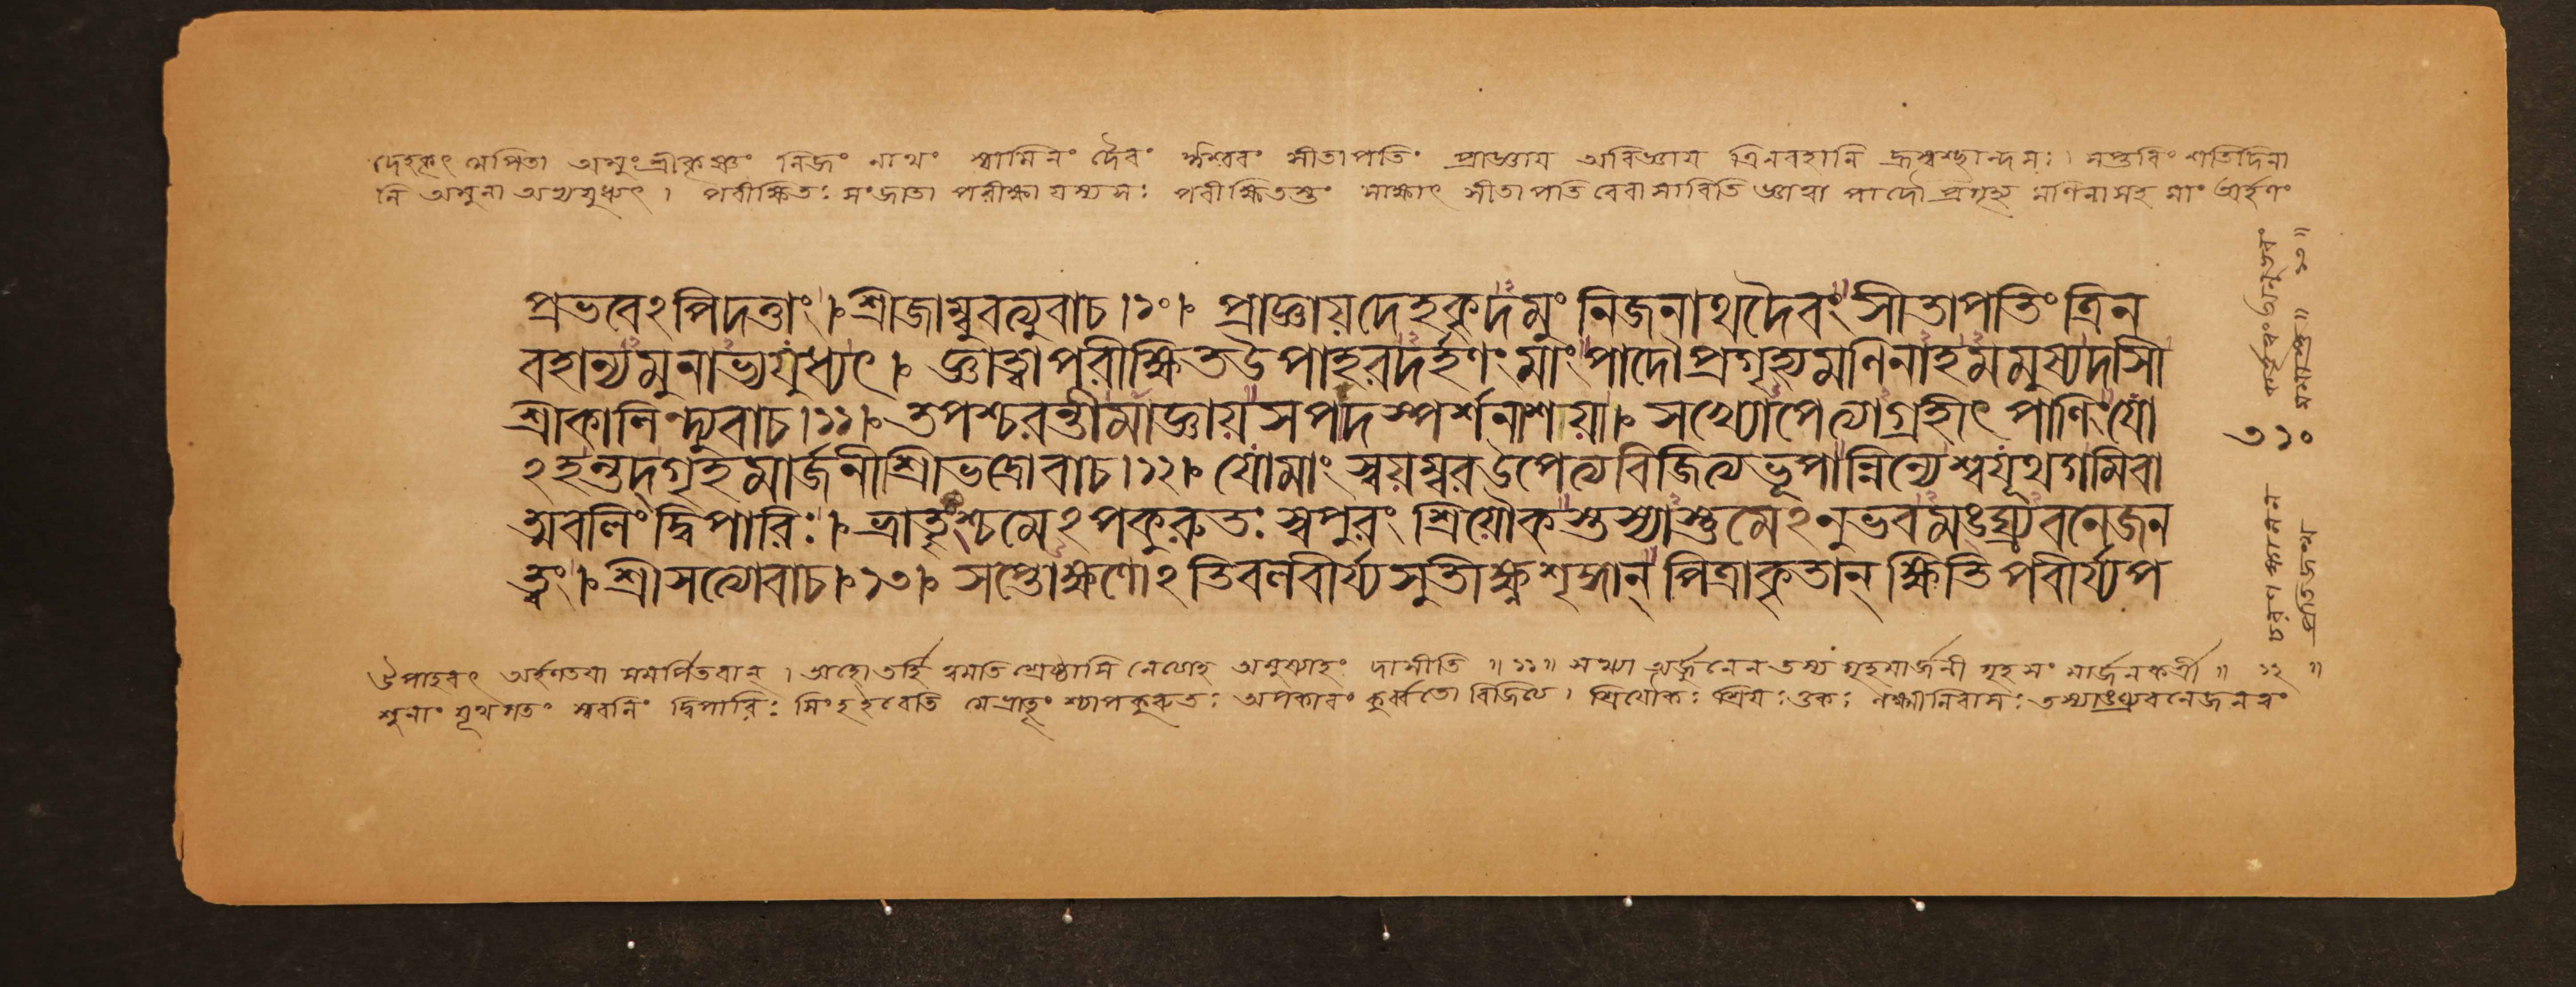 দেহকৃৎ মেপিতা অমুং শ্রীকৃষ্ণং নিজং নাথং স্বামিনং দৈবং ঈশ্বরং সীতাপতিং প্রাজ্ঞায় অবিজ্ঞায় ত্রিনবহানি হ্রস্বশ্ছান্দসঃ। সপ্তবিংশতিদিনা
নি অমুনা অভ্যযুধ্যৎ। পরীক্ষিতঃ সংজাতা পরীক্ষা যস্য সঃ পরীক্ষিতস্তং সাক্ষাৎ সীতাপতিরেবাসাবিতি জ্ঞাত্বা পাদৌ প্রগৃহ্য মণিনাসহ মাং অর্হণং
প্রভবেঽপিদত্তাং। শ্রীজাম্বুবত্যুবাচ।১০। প্রাজ্ঞায়দেহকৃদমুং নিজনাথদৈবং সীতাপতিং ত্রিন
বহান্যমুনাভ্যযুধ্যৎ। জ্ঞাত্বাপরীক্ষিতউপাহরদর্হণং মাং পাদৌপ্রগৃহ্যমণিনাহমমুষ্যদাসী
শ্রীকালিন্দ্যুবাচ।১১। তপশ্চরন্তীমাজ্ঞায়সপদস্পর্শনাশয়া। সখ্যোপেত্যাগ্রহীৎ পাণিং যো
ঽহন্তদ্গৃহমার্জনীশ্রীভদ্রোবাচ।১২। যোমাং স্বয়ম্বরউপেত্যবিজিত্যভূপান্নিন্যেশ্বযূথগমিবা
ত্মবলিং দ্বিপারিঃ। ভ্রাতৄংশ্চমেঽপকুরুতঃ স্বপুরং শ্রিয়ৌকস্তস্যাস্তুমেঽনুভবমঙ্ঘ্র্যবনেজন
ত্বং। শ্রীসত্যোবাচ।১৩। সপ্তোক্ষণোঽতিবলবীর্য্যসুতীক্ষ্ণশৃঙ্গান্ পিত্রাকৃতান্ ক্ষিতিপবীর্য্যপ
উপাহরৎ অর্হণতয়া সমর্পিতবান্। দাসীতি ॥১১॥ সখ্যা অর্জুনেন তস্য গৃহমার্জনী গৃহসংমার্জনকর্ত্রী ॥১২॥
শুনাং যূথগতং স্ববলিং দ্বিপারিঃ সিংহইবেতি মেভ্রাতৄংশ্চাপকুরুতঃ অপকারং কুর্ব্বতো বিজিত্য। শ্রিয়ৌকঃ শ্রিয়ঃওকঃ লক্ষ্মীনিবাসঃ তস্যাঙ্ঘ্র্যবনেজনত্বং
১৩॥
৩১০